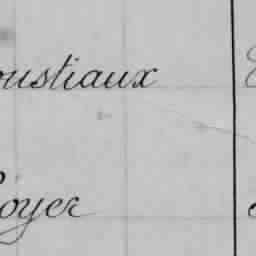 oustiaux
oyer